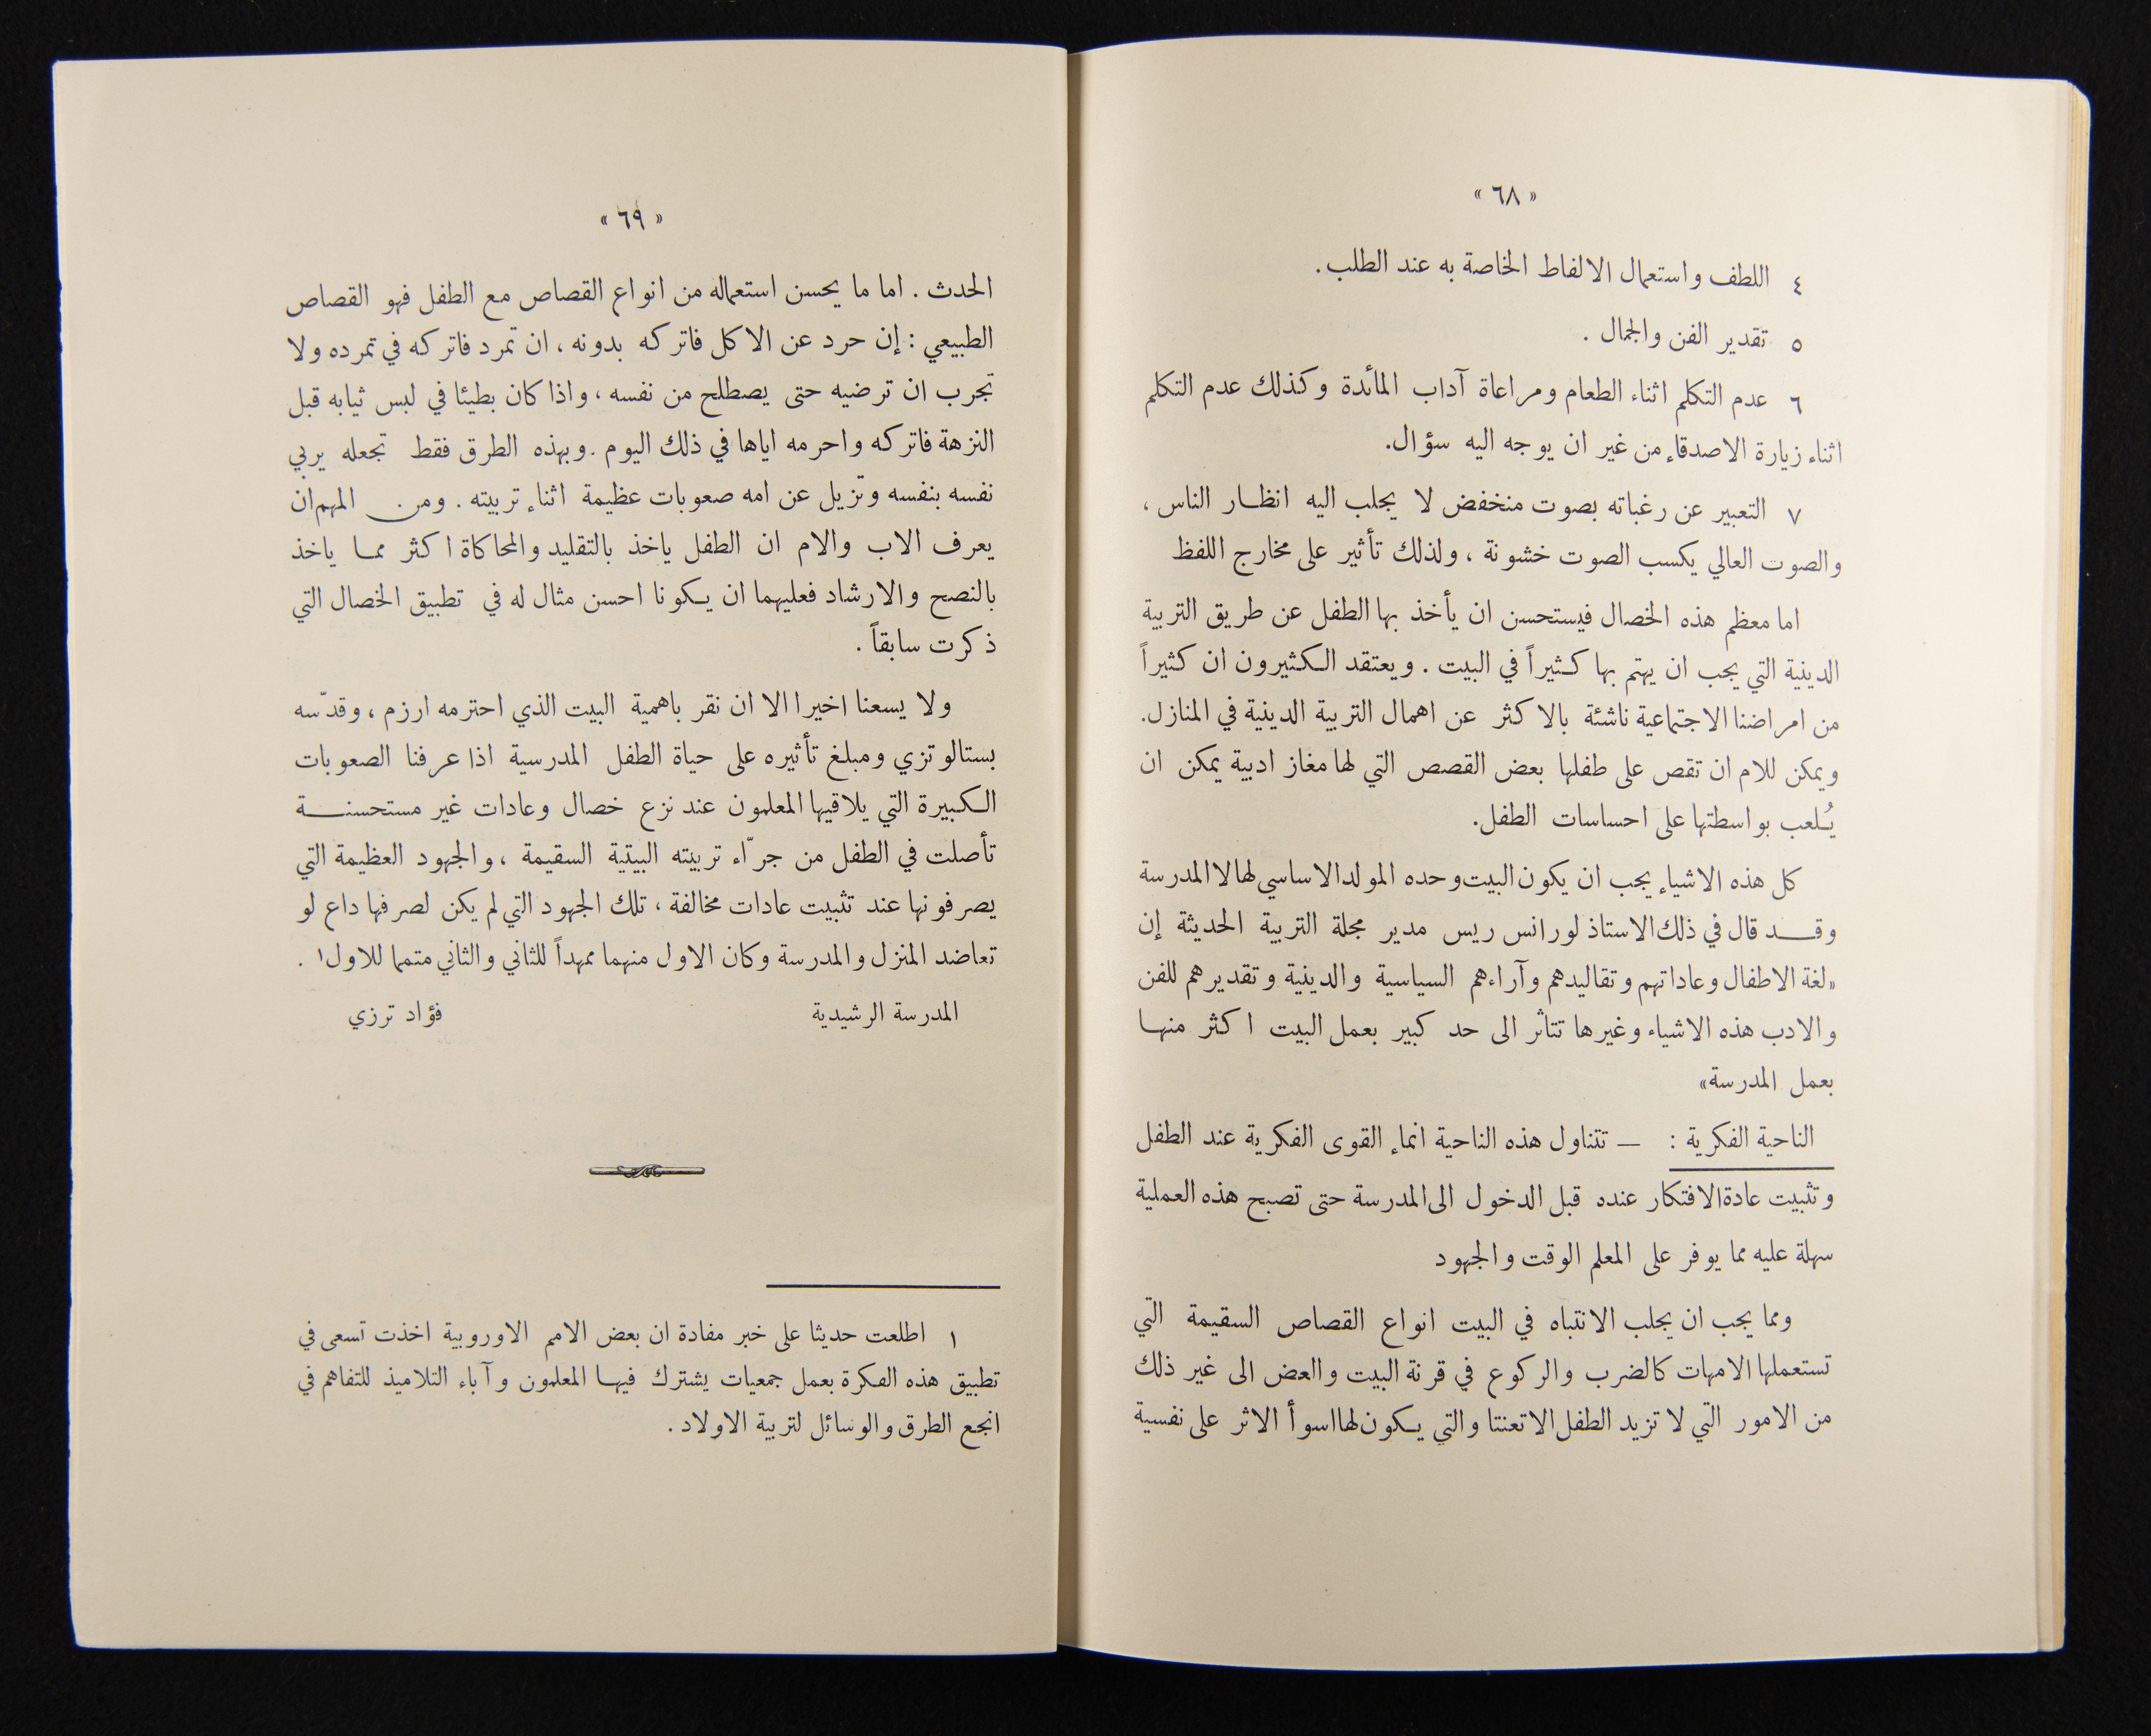 « ٦٨ »
٤ اللطف واستعمال الالفاظ الخاصة به عند الطلب.
٥ تقدير الفن والجمال .
٦ عدم التكلم اثناء الطعام ومراعاة آداب المائدة وكذلك عدم التكلم
اثناء زيارة الاصدقاء من غير ان يوجه اليه سؤال.
٧ التعبير عن رغباته بصوت منخفض لا يجلب اليه انظار الناس ،
والصوت العالي يكسب الصوت خشونة ، ولذلك تأثير على مخارج اللفظ
اما معظم هذه الخصال فيستحسن ان يأخذ بها الطفل عن طريق التربية
الدينية التي يجب ان يهتم بها كثيراً في البيت . ويعتقد الكثيرون ان كثيراً
من امراضنا الاجتماعية ناشئة بالاكثر عن اهمال التربية الدينية في المنازل.
ويمكن للام ان تقص على طفلها بعض القصص التي لها مغاز ادبية يمكن ان
يُلعب بواسطتها على احساسات الطفل.
كل هذه الاشياء يجب ان يكون البيت وحده المولد الاساسي لها لا المدرسة
وقد قال في ذلك الاستاذ لورانس ريس مدير مجلة التربية الحديثة إن
«لغة الاطفال وعاداتهم وتقاليدهم وآراءهم السياسية والدينية وتقديرهم للفن
والادب هذه الاشياء وغيرها تتاثر الى حد كبير بعمل البيت اكثر منها
بعمل المدرسة»
الناحية الفكرية : — تتناول هذه الناحية انماء القوى الفكرية عند الطفل
وتثبيت عادة الافتكار عنده قبل الدخول الى المدرسة حتى تصبح هذه العملية
سهلة عليه مما يوفر على المعلم الوقت والجهود
ومما يجب ان يجلب الانتباه في البيت انواع القصاص السقيمة التي
تستعملها الامهات كالضرب والركوع في قرنة البيت والعض الى غير ذلك
من الامور التي لا تزيد الطفل الا تعنتا والتي يكون لها اسوأ الاثر على نفسية
« ٦٩ »
الحدث . اما ما يحسن استعماله من انواع القصاص مع الطفل فهو القصاص
الطبيعي : إن حرد عن الاكل فاتركه بدونه ، ان تمرد فاتركه في تمرده ولا
تجرب ان ترضيه حتى يصطلح من نفسه ، واذا كان بطيئا في لبس ثيابه قبل
النزهة فاتركه واحرمه اياها في ذلك اليوم . وبهذه الطرق فقط تجعله يربي
نفسه بنفسه وتزيل عن امه صعوبات عظيمة اثناء تربيته . ومن المهم ان
يعرف الاب والام ان الطفل ياخذ بالتقليد والمحاكاة اكثر مما ياخذ
بالنصح والارشاد فعليهما ان يكونا احسن مثال له في تطبيق الخصال التي
ذكرت سابقاً .
ولا يسعنا اخيرا الا ان نقر باهمية البيت الذي احترمه ارزم ، وقدّسه
بستالوتزي ومبلغ تأثيره على حياة الطفل المدرسية اذا عرفنا الصعوبات
الكبيرة التي يلاقيها المعلمون عند نزع خصال وعادات غير مستحسنة
تأصلت في الطفل من جرّاء تربيته البيتية السقيمة ، والجهود العظيمة التي
يصرفونها عند تثبيت عادات مخالفة ، تلك الجهود التي لم يكن لصرفها داع لو
تعاضد المنزل والمدرسة وكان الاول منهما ممهداً للثاني والثاني متمما للاول١ .
المدرسة الرشيدية فؤاد ترزي
١ اطلعت حديثا على خبر مفادة ان بعض الامم الاوروبية اخذت تسعى في
تطبيق هذه الفكرة بعمل جمعيات يشترك فيها المعلمون وآباء التلاميذ للتفاهم في
انجع الطرق والوسائل لتربية الاولاد .